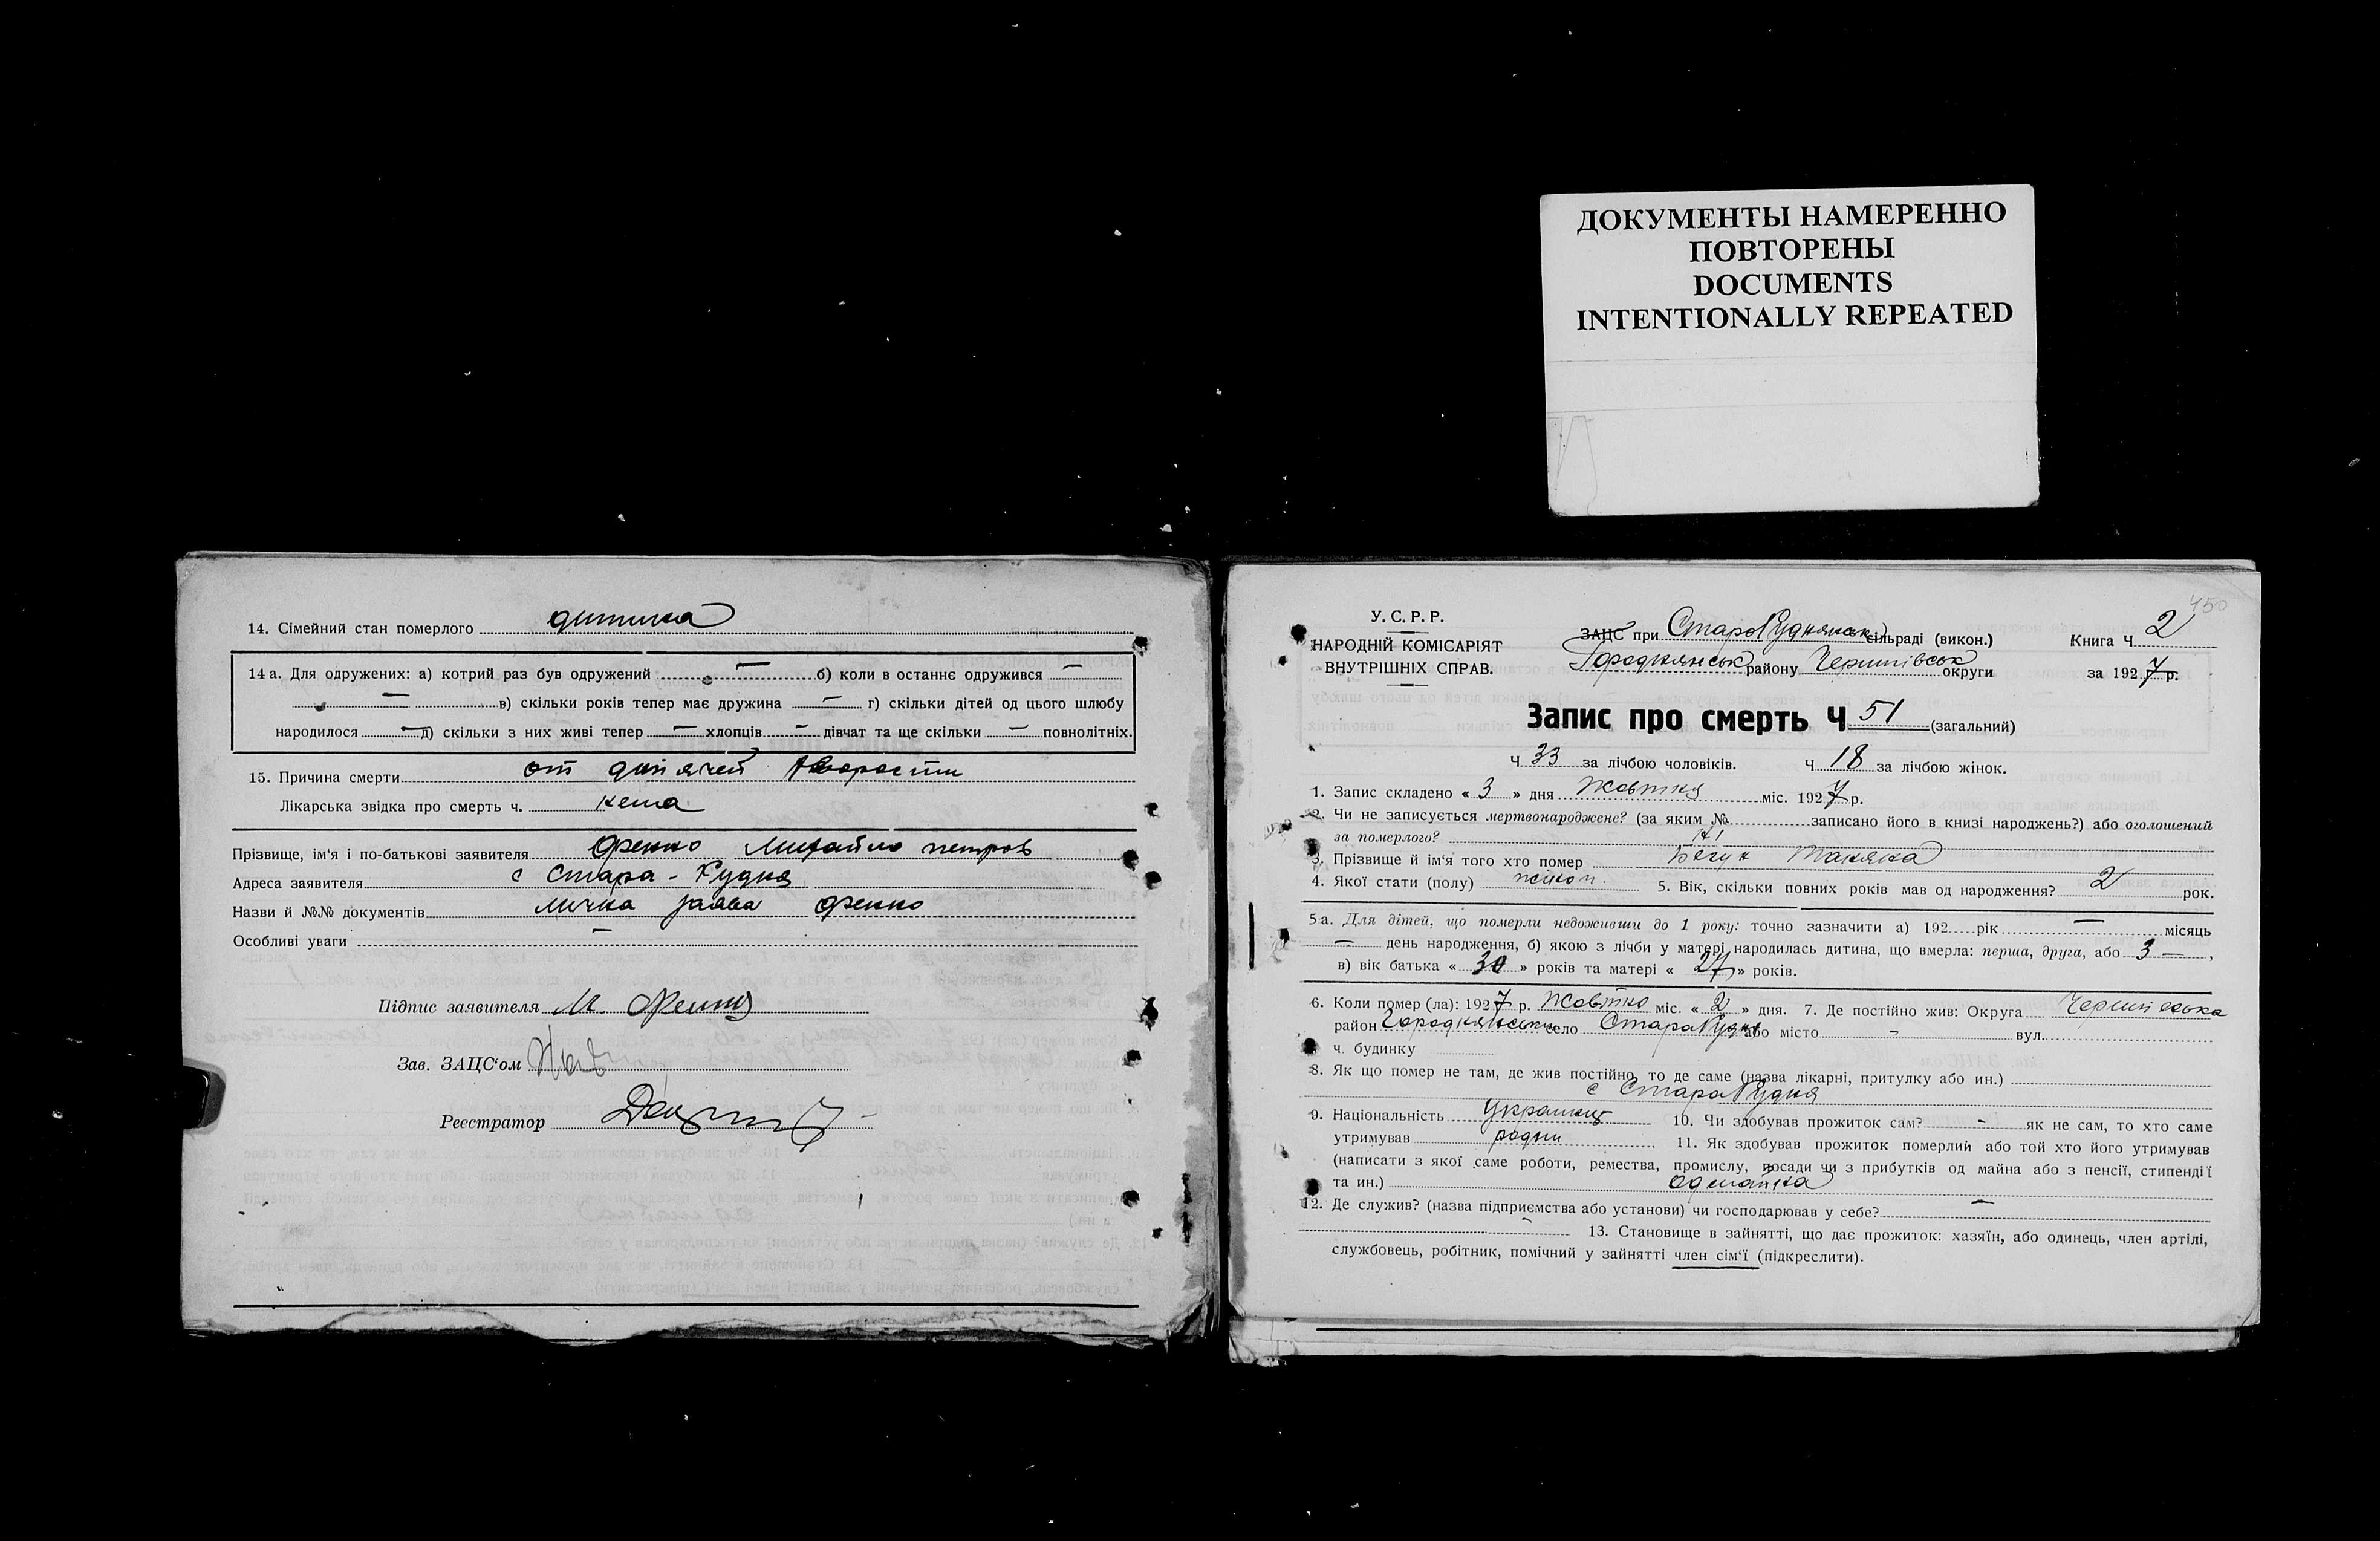 ДОКУМЕНТЫ НАМЕРЕННО
ПОВТОРЕНЫ
DOCUMENTS
INTENTIONALLY REPEATED
14. Сімейний стан померлого дитина
14 а. Для одружених: а) котрий раз був одружений — б) коли в останнє одружився —
— в) скільки років тепер має дружина — г) скільки дітей од цього шлюбу
народилося — д) скільки з них живі тепер — хлопців — дівчат та ще скільки — повнолітніх.
15. Причина смерти от дитячей
Лікарська звідка про смерть ч. нема
Прізвище, ім'я і по-батькові заявителя Михайло петров
Адреса заявителя с Стара-Рудня
Назви й №№ документів лична заява
Особливі уваги —
Підпис заявителя М.
Зав. ЗАЦС'ом
Реєстратор
450
У. С. Р. Р.
НАРОДНІЙ КОМІСАРІЯТ
ВНУТРІШНІХ СПРАВ.
ЗАЦС при СтароРуднянськ сільраді (викон.)
Городнянськ району Чернигівськ округи
Книга Ч 2
за 1927 р.
Запис про смерть Ч 51 (загальний)
Ч 33 за лічбою чоловіків. Ч 18 за лічбою жінок.
1. Запис складено « 3 » дня Жовтня міс. 1927 р.
2. Чи не записується мертвонароджене? (за яким № записано його в книзі народжень?) або оголошений
за померлого? Ні
3. Прізвище й ім'я того хто помер
4. Якої стати (полу) 5. Вік, скільки повних років мав од народження? 2 рок.
5а. Для дітей, що померли недоживши до 1 року: точно зазначити а) 192 рік — місяць
— день народження, б) якою з лічби у матері народилась дитина, що вмерла: перша, друга, або 3 — ,
в) вік батька « 30 » років та матері « 27 » років.
6. Коли помер (ла): 1927 р. Жовтня міс. « 2 » дня. 7. Де постійно жив: Округа
район Городнянськи село СтараРудня або місто - вул.
ч. будинку
8. Як що помер не там, де жив постійно, то де саме (назва лікарні, притулку або ин.)
с СтараРудня
9. Національність Українец 10. Чи здобував прожиток сам? - як не сам, то хто саме
утримував родни 11. Як здобував прожиток померлий або той хто його утримував
(написати з якої саме роботи, ремества, промислу, посади чи з прибутків од майна або з пенсії, стипендії
та ин.) одмайна
12. Де служив? (назва підприємства або установи) чи господарював у себе? —
- 13. Становище в зайнятті, що дає прожиток: хазяїн, або одинець, член артілі,
службовець, робітник, помічний у зайнятті член сім'ї (підкреслити).